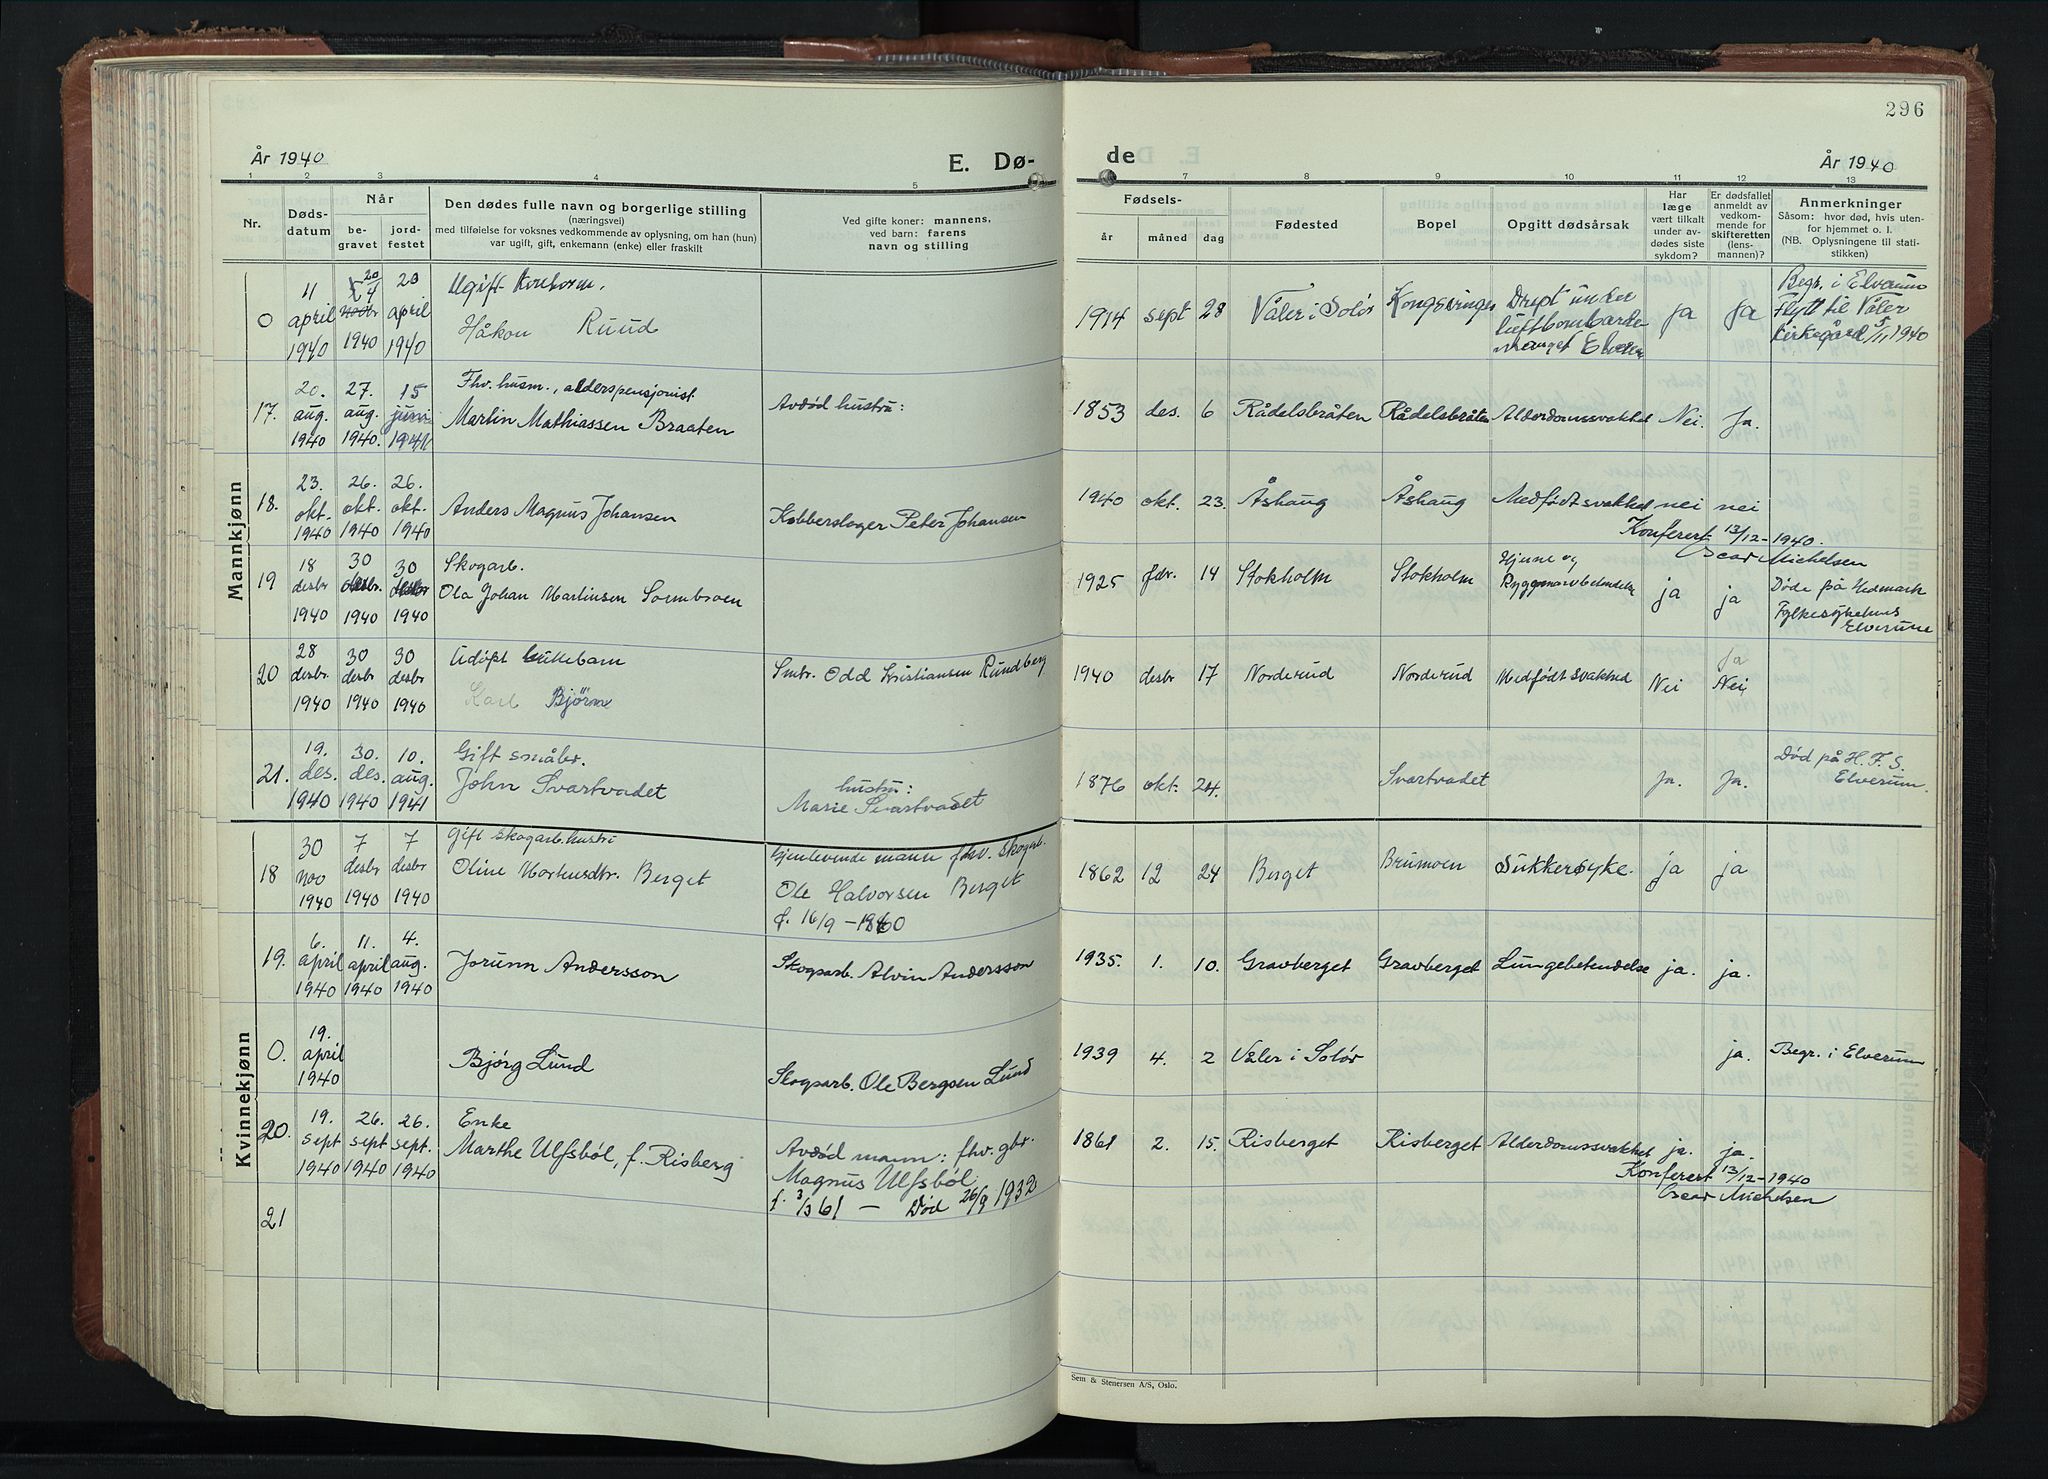 296
År 1940
E. Dø-
de
År 1940
1 2 3 4 5 7 8 9 10 11 12 13
Nr.
Døds-
datum
Når
be-
gravet
jord-
festet
Den dødes fulle navn og borgerlige stilling
(næringsvei)
med tilføielse for voksnes vedkommende av oplysning, om han (hun)
var ugift, gift, enkemann (enke) eller fraskilt
Ved gifte koner: mannens,
ved barn: farens
navn og stilling
Fødsels-
år måned dag
Fødested
Bopel
Opgitt dødsårsak
Har
læge
vært tilkalt
under av-
dødes siste
sykdom?
Er dødsfallet
anmeldt av
vedkom-
mende for
skifteretten
(lens-
mannen)?
Anmerkninger
Såsom: hvor død, hvis uten-
for hjemmet o. l.
(NB. Oplysningene til stati-
stikken)
Mannkjønn
0
11 april 1940
20/4 1940
20 april 1940
Ugift
Håkon Ruud
1914 sept 28 Våler i Solør Kongsvinger
Drept under
luftbombarde-
manget Elverum
ja ja
Begr. i Elverum
Flytt til Våler
kirkegård 5/11 1940
17.
20. aug. 1940
27. aug. 1940.
15 juni 1941
Fhv. husm., alderspensjonist
Martin Mathiassen Braaten
Avdød hustru:
1853 des. 6 Rådelsbråten Rådelsbråten Alderdomssvakhet Nei. Ja.
18.
23. okt. 1940
26. okt. 1940
26. okt. 1940
Anders Magnus Johansen
Kobberslager Peter Johansen
1940 okt. 23. Åshaug Åshaug Medfødt svakhet nei nei
Konferert 13/12-1940.
Oscar Michelsen
19
18 desbr 1940
30 desbr. 1940
30 desbr 1940
Skogarb.
Ola Johan Martinsen Sormbroen
1925 fdr. 14 Stokholm Stokholm
Hjerne og
Ryggmarvbetendelse
ja ja
Døde på Hedmark
Fylkesykehus
Elverum
20
28 desbr. 1940
30 desbr 1940
30 desbr 1940
Udøpt guttebarn
Karl Bjørne
Smbr. Odd Kristiansen Rundberg
1940 desbr 17 Norderud Norderud Medfødt svakhed Nei
Ja
Nei
21.
19. des. 1940
30. des. 1940
10. aug. 1941
Gift småbr.
John Svartvadet
hustru:
Marie Svartvadet
1876 okt. 24. Svartvadet Ja. Ja.
Død på H. F. S.
Elverum.
Kvinnekjønn
18
30 nov 1940
7 desbr 1940
7 desbr 1940
Gift skogarb. hustru
Oline Morhusdtr. Berget
Gjenlevende mann fhv. skogarb.
Ole Halvorsen Berget
f. 16/9 - 1860
1862 12 24 Berget Brumoen Sukkersyke. ja ja
19.
6. april 1940
11. april 1940
4. aug. 1940
Jorunn Andersson
Skogsarb. Alvin Andersson
1935. 1. 10. Gravberget Gravberget Lungebetendelse ja. ja.
0.
19. april 1940
Bjørg Lund
Skogsarb. Ole Bergsen Lund
1939 4. 2 Våler i Solør ja. Begr. i Elverum
20.
19. sept 1940
26. sept 1940
26. sept. 1940
Enke
Marthe Ulfsbøl, f. Risberg
Avdød mann: fhv. gbr.
Magnus Ulfsbøl
f. 3/3 61 - Død 26/9 1932
1861 2. 15. Risberget Risberget Alderdomssvakhet ja. ja.
Konferert 13/12-1940
Oscar Michelsen
21
Sem & Stenersen A/S, Oslo.